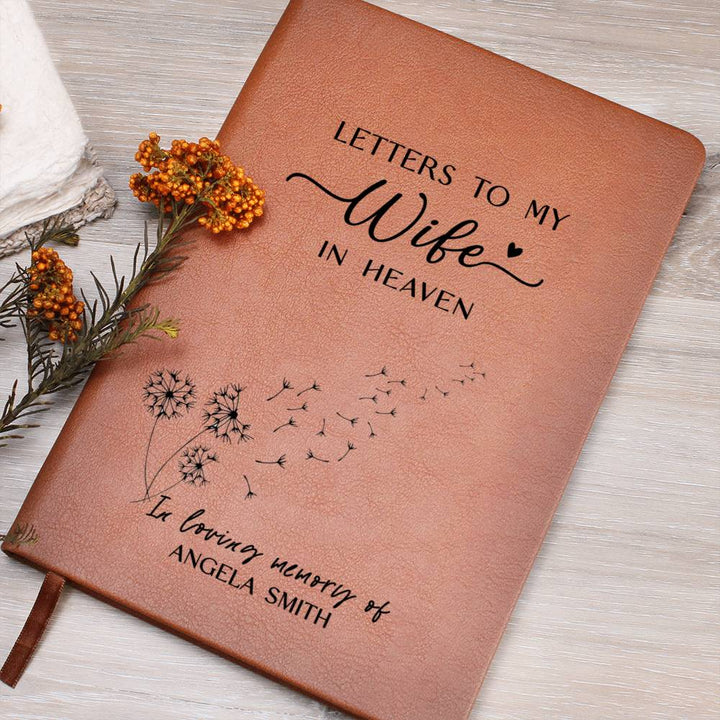 LETTERS TO MY
Wife
IN HEAVEN
In loving memory of
ANGELA SMITH